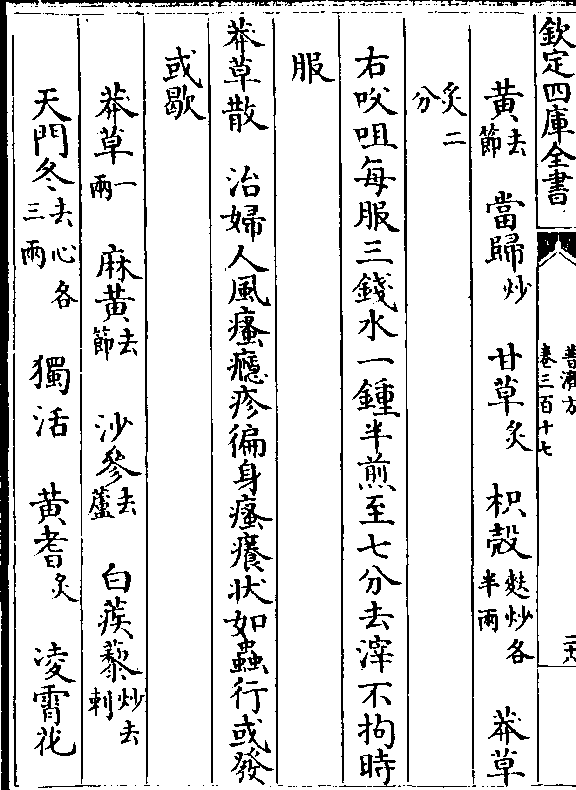 欽定四庫全書
普濟方
卷三百十七
黄去節 當歸炒 甘草炙 枳殻麩炒各半兩 莽草
炙二分
右㕮咀每服三錢水一鍾半煎至七分去滓不拘時
服
莽草散 治婦人風瘙癮疹徧身瘙癢状如蟲行或發
或歇
莽草一兩 麻黄去節 沙參去蘆 白蒺藜炒去刺
天門冬去心各三兩 獨活 黄耆炙 凌霄花